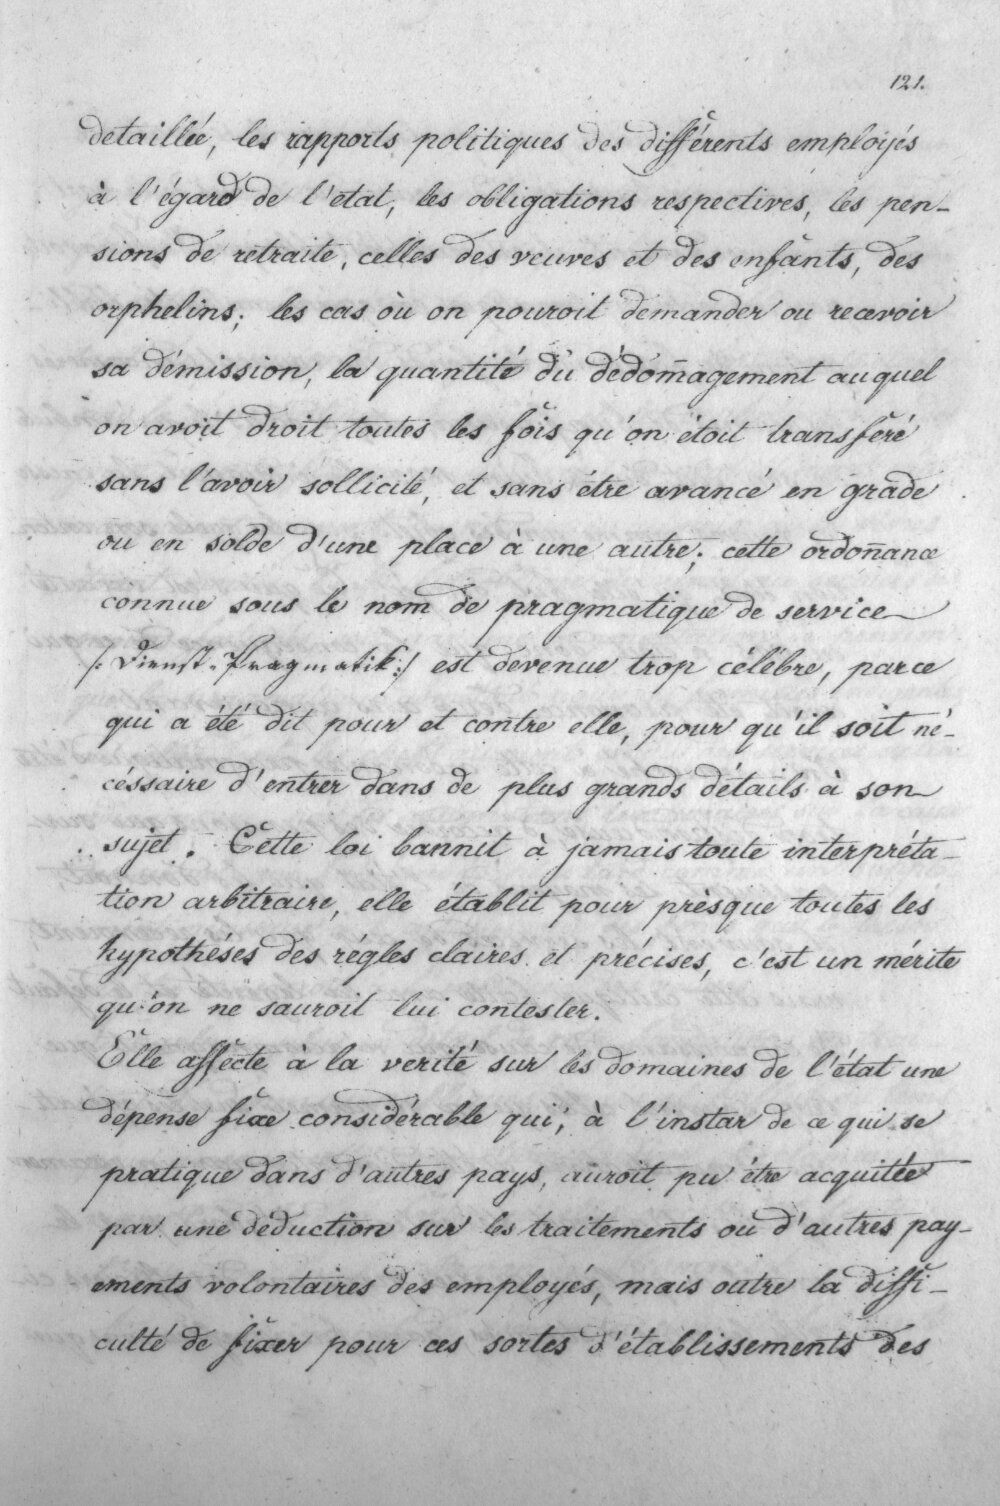 121.
detaillée, les rapports politiques des différents employés
à l'égard de l'etat, les obligations respectives, les pen-
sions de retraite, celles des veuves et des enfants, des
orphelins; les cas où on pouroit demander ou recevoir
sa démission, la quantité du dédom̄agement auquel
on avoit droit toutes les fois qu'on étoit transféré
sans l'avoir sollicité, et sans étre avancé en grade
ou en solde d'une place à une autre; cette ordon̄ance
connue sous le nom de pragmatique de service
/: Dienst-Pragmatik :/ est devenue trop célébre, par ce
qui a été dit pour et contre elle, pour qu'il soit né-
céssaire d'entrer dans de plus grands détails à son
sujet. Cette loi bannit à jamais toute interpréta-
tion arbitraire, elle établit pour présque toutes les
hypothéses des régles claires et précises, c'est un mérite
qu'on ne sauroit lui contester.
Elle affecte à la verité sur les domaines de l'état une
dépense fixe considérable qui, à l'instar de ce qui se
pratique dans d'autres pays, auroit pu étre acquitée
par une déduction sur les traitements ou d'autres pay-
ements volontaires des employés, mais outre la diffi-
culté de fixer pour ces sortes d'établissements des